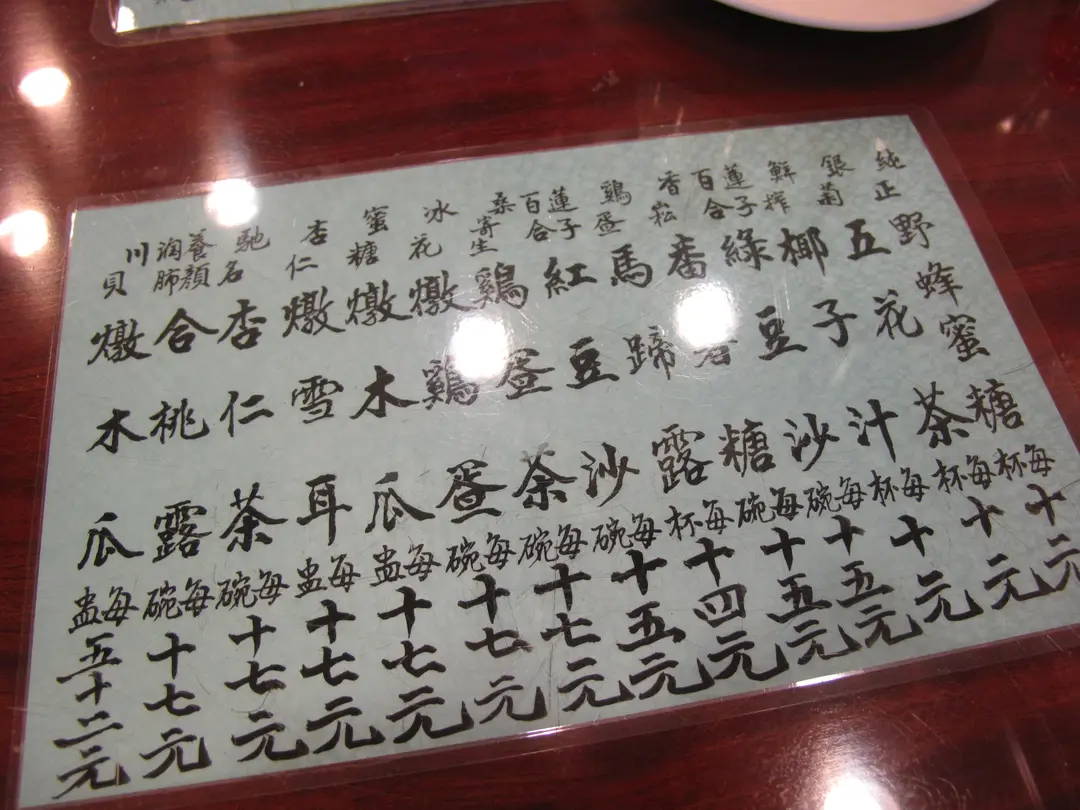 純正野蜂蜜糖每杯十元
銀菊五花茶每杯十元
鮮搾椰子汁每杯十元
蓮子百合綠豆沙每碗十五元
香崧番薯糖每碗十五元
鷄蛋馬蹄露每杯十四元
蓮子百合紅豆沙每碗十五元
桑寄生鷄蛋茶每碗十七元
冰花燉鷄蛋每碗十七元
蜜糖燉木瓜每盅十七元
杏仁燉雪耳每盅十七元
馳名杏仁茶每碗十七元
養顏潤肺合桃露每碗十七元
川貝燉木瓜每盅五十二元